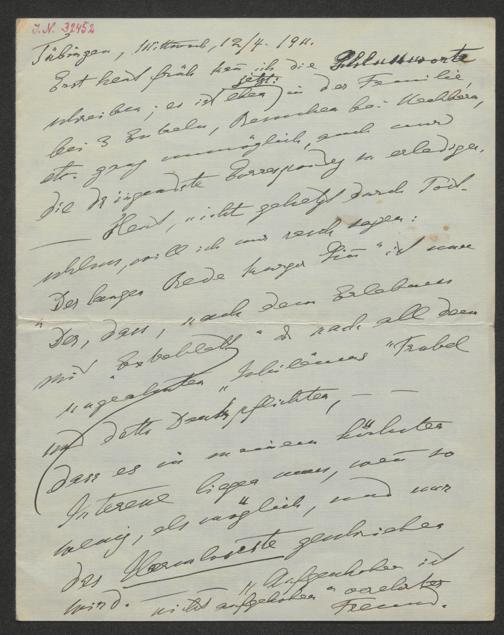 J.N. 32452
Tübingen, Mittwoch, 12/4. 1911.
Erst heut früh kann ich die Schlussworte
schreiben; es ist eben jetzt: in der Familie
bei 3 Enkeln, Besuchen bei Nachbarn,
etc. ganz unmöglich, auch nur
die dringendste Correspondenz zu erledigen.
Heut, nicht gehetzt durch
will ich nur rasch sagen:
"Der langen Rede kurzer Sinn" ist nun
Der, dass, nach dem Erlebnis
mit " & nach all dem
ungeahnten "Jubiläums" Trubel
und dito Dankpflichten, — —
dass es in meinem höchsten
Interesse liegen muss, wenn so
wenig, als möglich, und nur
das Harmloseste geschrieben
wird. — "Aufgeschoben ist
nicht aufgehoben" verehrter
Freund.